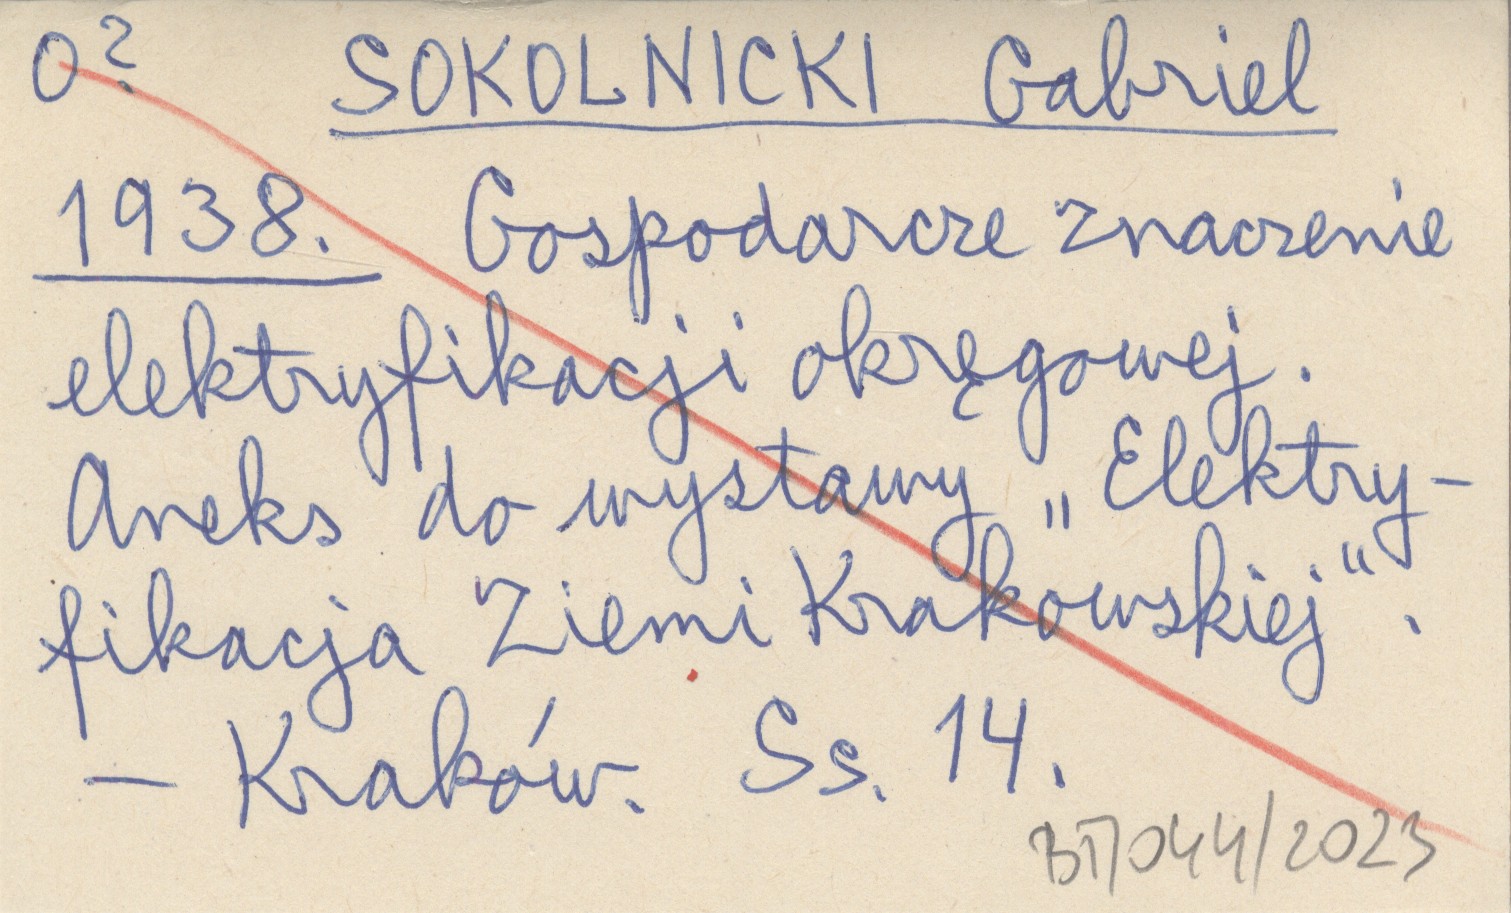 O? SOKOLNICKI Gabriel
1938. Gospodarcze znaczenie
elektryfikacji okręgowej.
Aneks do wystawy „Elektry-
fikacja Ziemi Krakowskiej“.
– Kraków. Ss. 14.
BT/044/2023